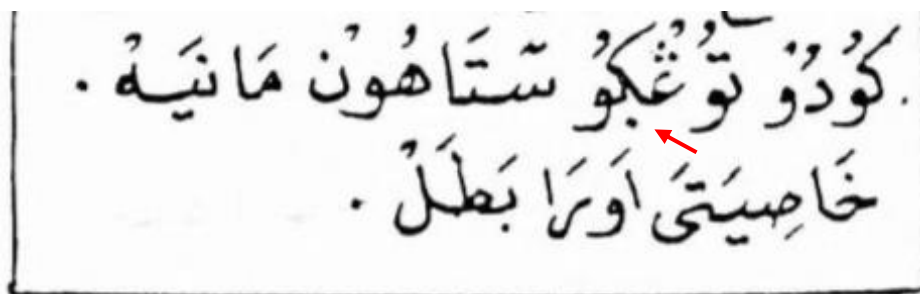 . كَوُدُوْ تَوُڠْࢴُو سَتَاهُوْن مَانَيَهْ .
خَاصِيَتَىَ اَوَرَا بَطَلْ .